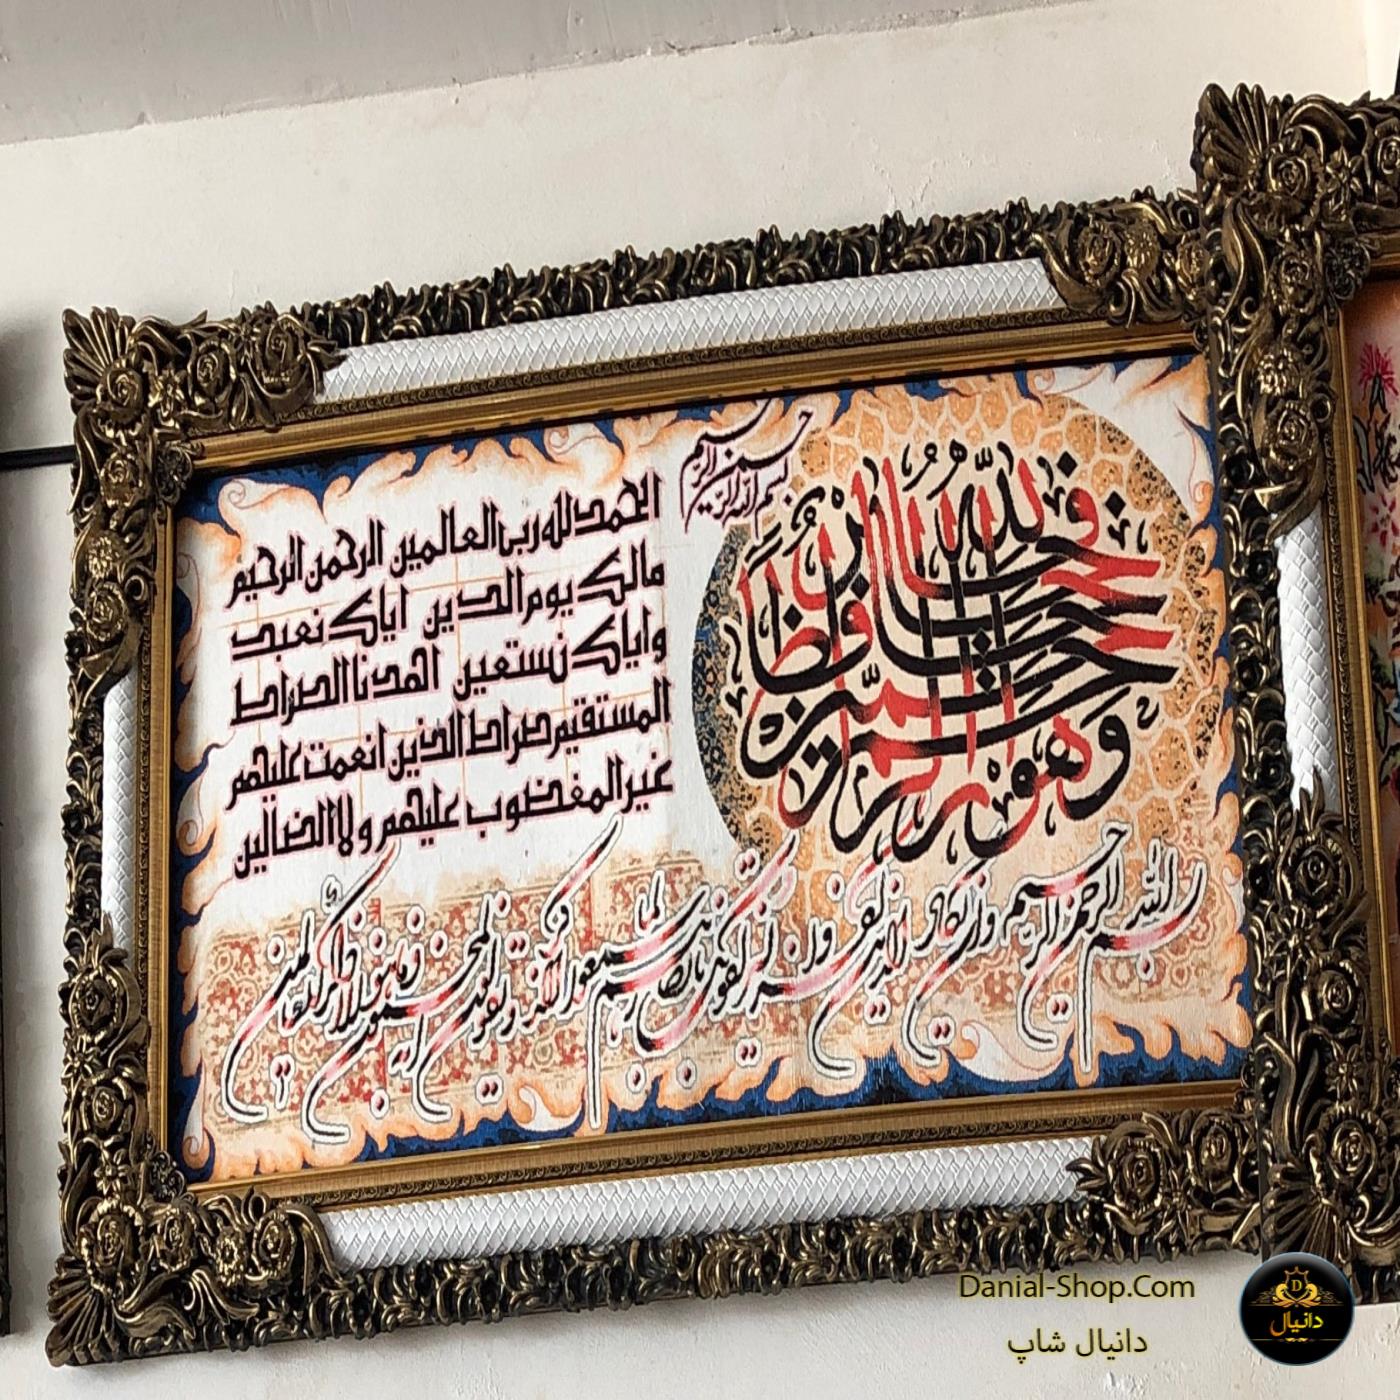 بسم الله الرحمن الرحیم
الحمدلله رب العالمین الرحمن الرحیم
مالک یوم الدین ایاک نعبد
وایاک نستعین اهدنا الصراط
المستقیم صراط الذین انعمت علیهم
غیر المغضوب علیهم ولا الضالین
فالله خیر حافظا وهو ارحم الراحمین
بسم الله الرحمن الرحیم وان یکاد الذین کفروا لیزلقونک بابصارهم لما سمعوا الذکر ویقولون انه لمجنون وما هو الا ذکر للعالمین
Danial-Shop.Com
دانیال شاپ
D
دانیال